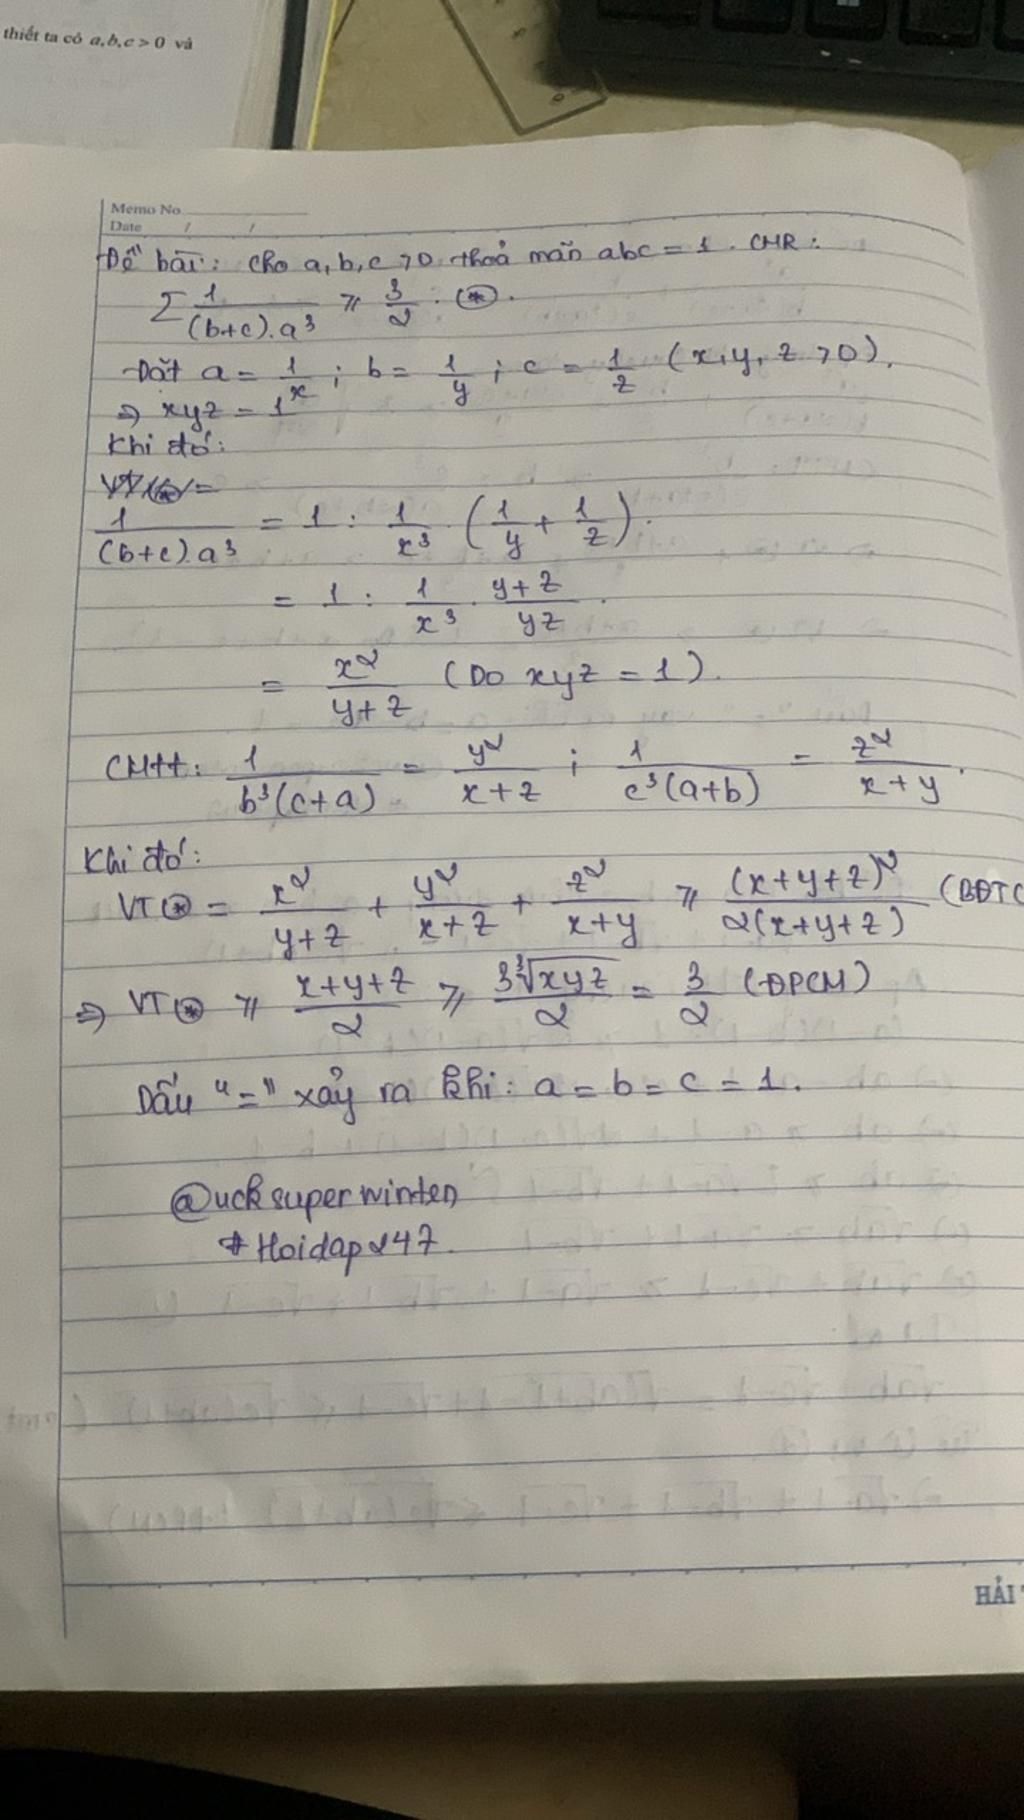 thiết ta có a,b,c > 0 và
Memo No
Date / /
Đề bài: Cho a,b,c >0 thoả mãn abc = 1. CMR:
Σ 1/((b+c).a³) ≥ 3/2. (*).
Đặt a = 1/x ; b = 1/y ; c = 1/z (x,y,z >0).
⇒ xyz = 1
Khi đó:
1/((b+c).a³) = 1 : 1/x³ . (1/y + 1/z).
= 1 : 1/x³ . (y+z)/yz.
= x²/(y+z) (Do xyz = 1).
CMTT: 1/(b³(c+a)) = y²/(x+z) ; 1/(c³(a+b)) = z²/(x+y).
Khi đó:
VT(*) = x²/(y+z) + y²/(x+z) + z²/(x+y) ≥ (x+y+z)²/(2(x+y+z)) (BĐTC
⇒ VT(*) ≥ (x+y+z)/2 ≥ 3∛(xyz)/2 = 3/2 (ĐPCM)
Dấu "=" xảy ra khi: a = b = c = 1.
@ucksuperwinten
#Hoidap247.
HẢI